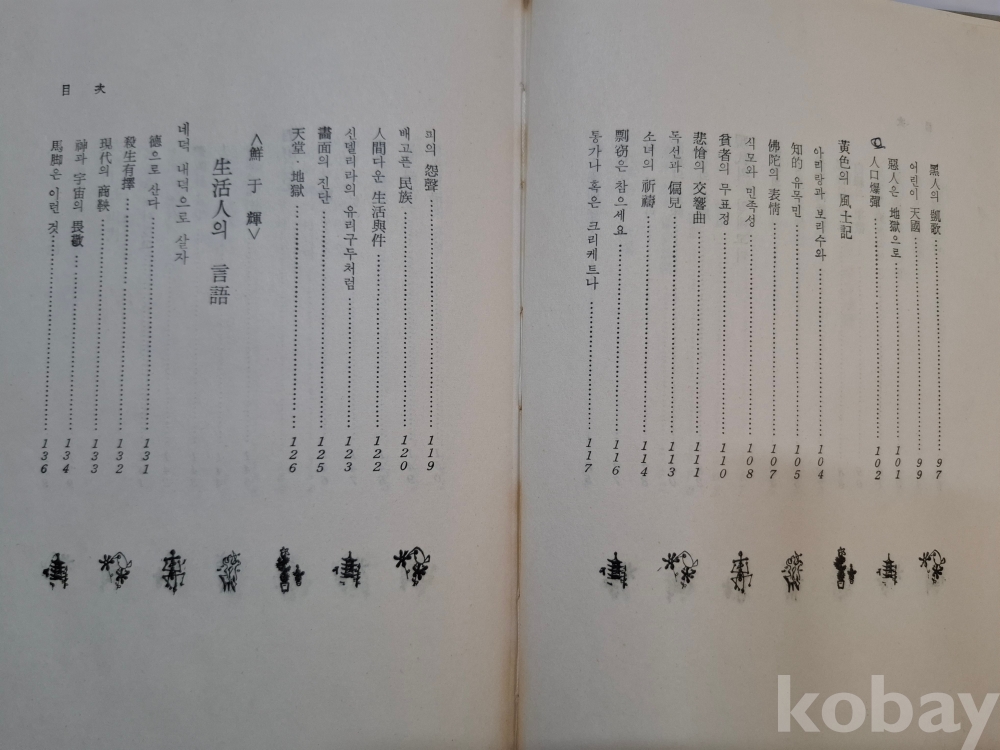 黑人의 凱歌 97
어린이 天國 99
惡人은 地獄으로 101
人口爆彈 102
黃色의 風土記
아리랑과 보리수와 104
知的 유목민 105
佛陀의 表情 107
식모와 민족성 108
貧者의 무표정 110
悲愴의 交響曲 111
독선과 偏見 113
소녀의 祈禱 114
剽窃은 참으세요 116
통가나 혹은 크리케트나 117
目 次
피의 怨聲 119
배고픈 民族 120
人間다운 生活與件 122
신델리라의 유리구두처럼 123
畵面의 진단 125
天堂·地獄 126
<鮮于 輝>
生活人의 言語
네덕 내덕으로 살자
德으로 산다 131
殺生有擇 132
現代의 商鞅 133
神과 宇宙의 畏敬 134
馬脚은 이런 것 136
kobay